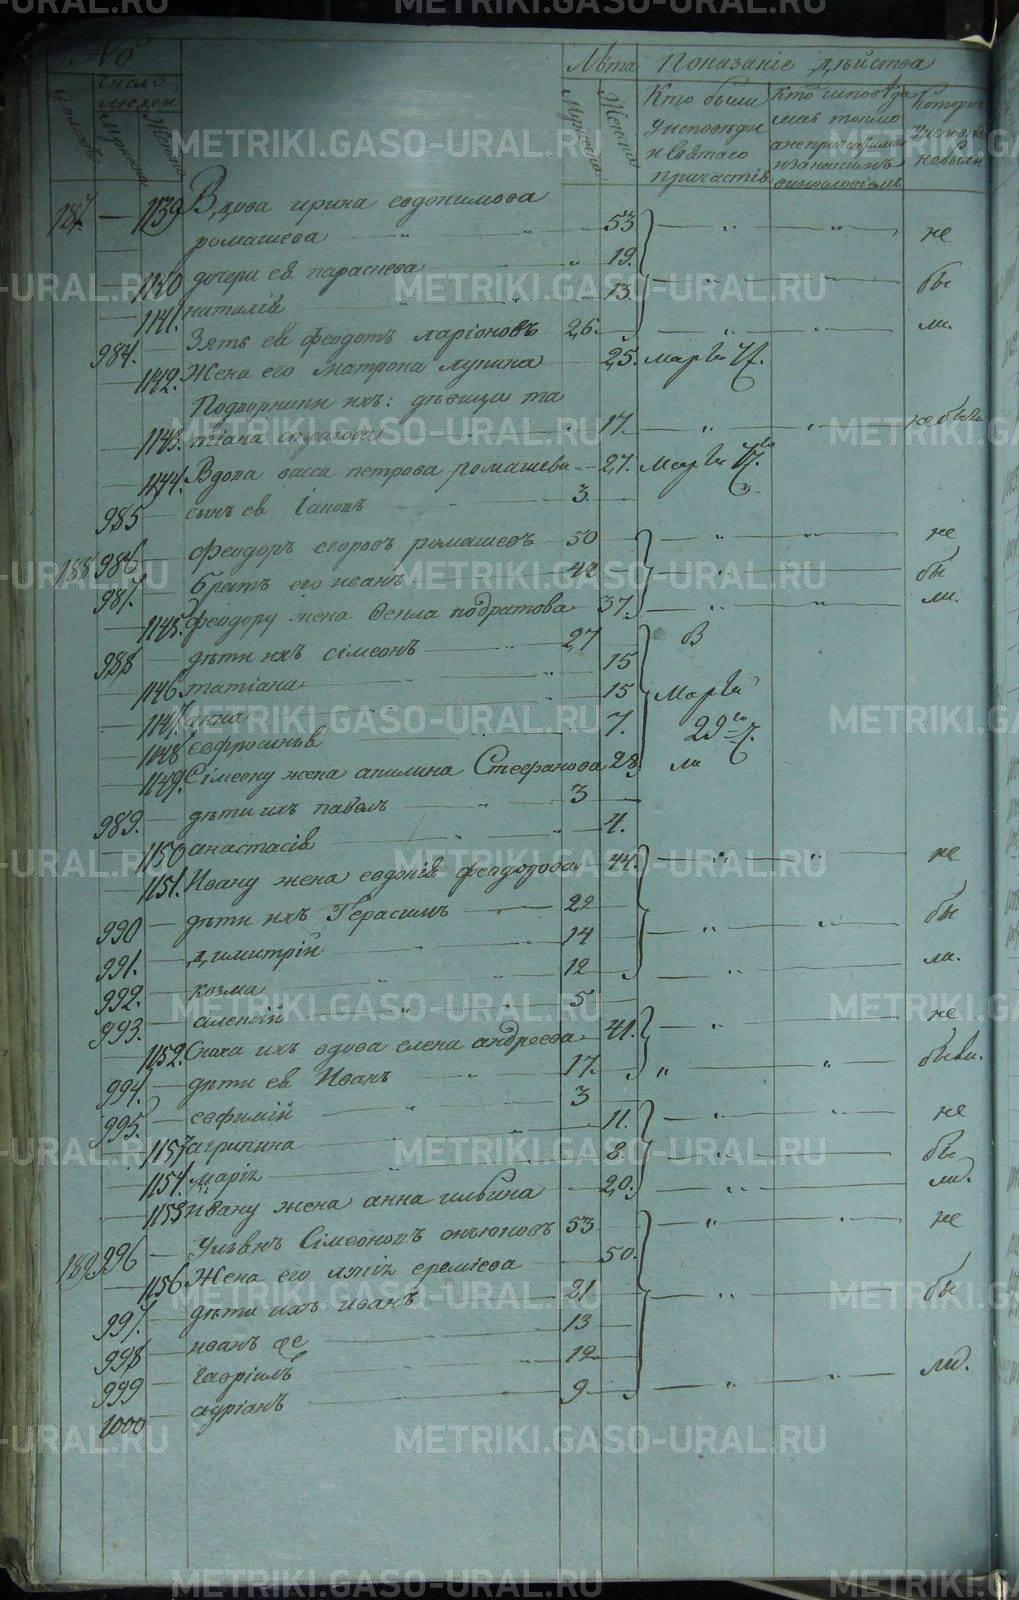 №
Число людей
Домовъ
Мужска
Женска
Лѣта
Мужска
Женска
Показаніе дѣйства
Кто были у исповѣди и Святаго Причастія
Кто исповѣда
которые у исповѣди небыли
187 — 1139 Вдова ирина евдокимова
ромашева 53 не
1140 дочери ея параскева 19. бы
1141. наталія 13.
984. Зять ея феодотъ ларіоновъ 26. ли.
1142. Жена его Матрона лупина 25. марта
Подворники ихъ: дѣвица та
1143. тіана 17. не были
1144. Вдова васса петрова ромашева 27. Марта
985 сынъ ея 3
188 986 феодоръ егоровъ ромашевъ 50 не
987. братъ его иванъ 42 бы
1145. феодору жена фекла 37. ли.
988 дѣти ихъ сімеонъ 27 В
1146 татіана 15
1147. анна 15 Марта
1148 евфросинія 7. 29
1149. Сімеону жена акилина Стефанова 28 ли
989. дѣти ихъ павелъ 3
1150 анастасія 4.
1151. Ивану жена евдокія феодорова 44. не
990 дѣти ихъ Герасимъ 22 бы
991. димитрій 14
992. козма 12 ли.
993. алексій 5 не
1152. Сноха ихъ вдова елена андреева 41. были.
994. дѣти ея Иванъ 17.
995. евфимій 3 не
1157 агрипина 11. бы
1154. марія 8. ли.
1153 ивану жена анна ильина 20.
189 996 Сімеоновъ 53 не
1156. Жена его еремѣева 50.
997. дѣти ихъ иванъ 21 бы
998 иванъ же 13
999 гавріилъ 12 ли.
1000 адріанъ 9
METRIKI.GASO-URAL.RU